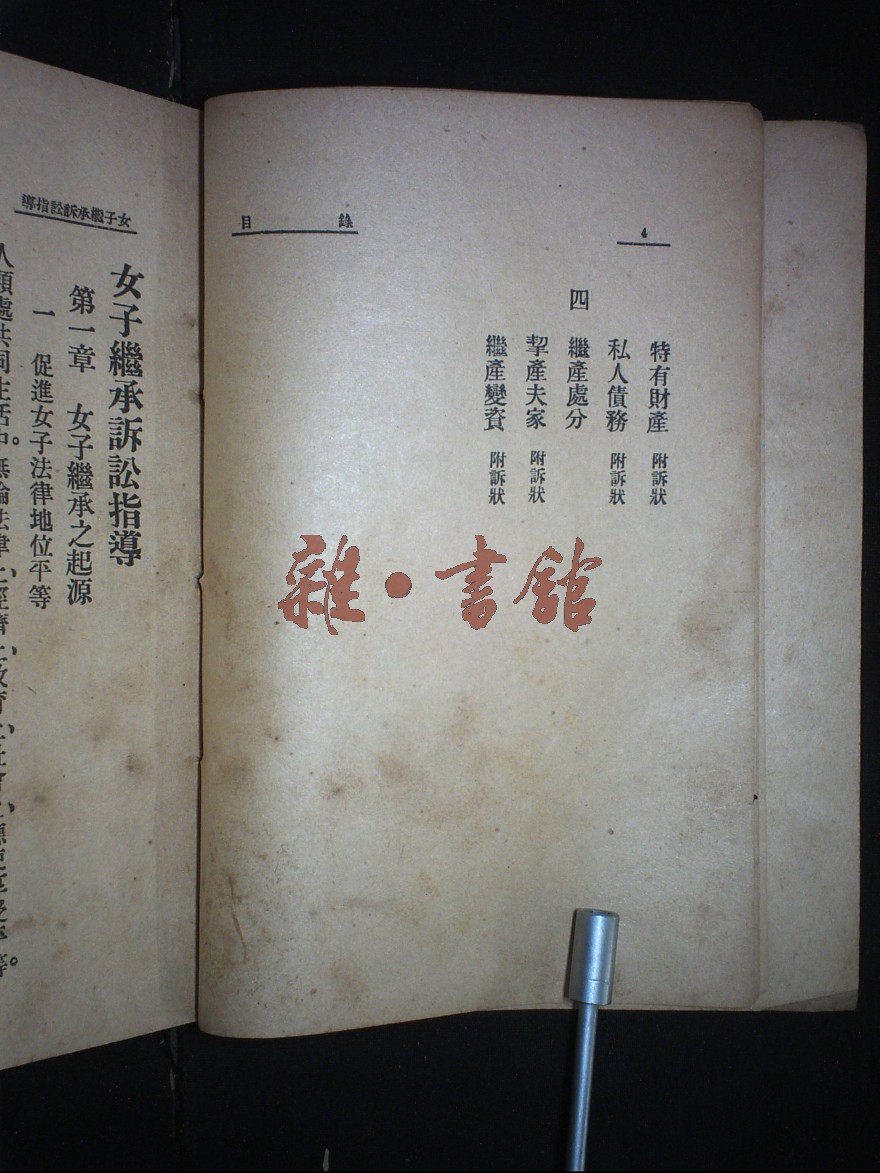 目錄
4
特有財產 附訴狀
私人債務 附訴狀
四 繼產處分
挈產夫家 附訴狀
繼產變資 附訴狀
雜·書館
女子繼承訴訟指導
女子繼承訴訟指導
第一章 女子繼承之起源
一 促進女子法律地位平等
人類處共同生活中。無論法律上、經濟上、敎育上、社會上、